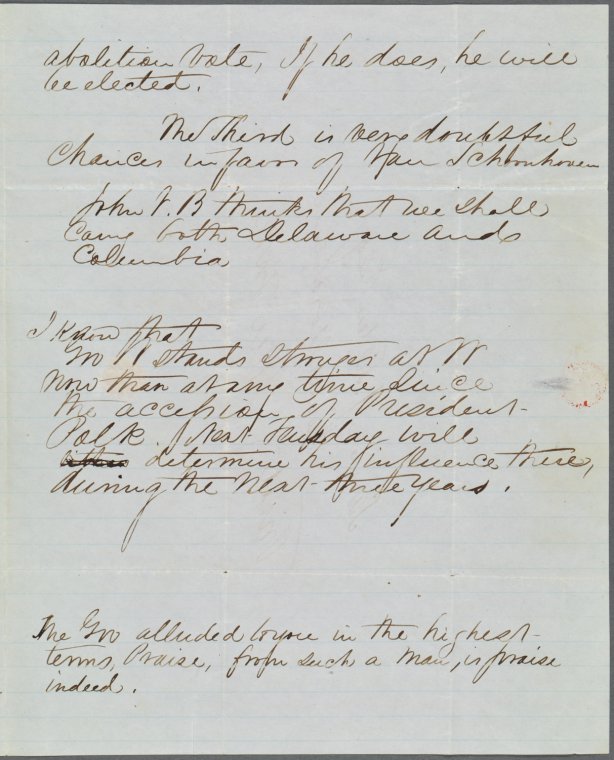 abolition vote, If he does, he will
be elected.
The Third is very doubtful
Chances in favor of Van Schoonhoven
John V. B thinks that we shall
Carry both Delaware and
Columbia
I know that
Gov stands stronger at W
now than at any time since
the accession of President
Polk. Next Tuesday will
determine his influence there,
during the next three years.
The Gov alluded to you in the highest
terms, Praise, from such a man, is praise
indeed.